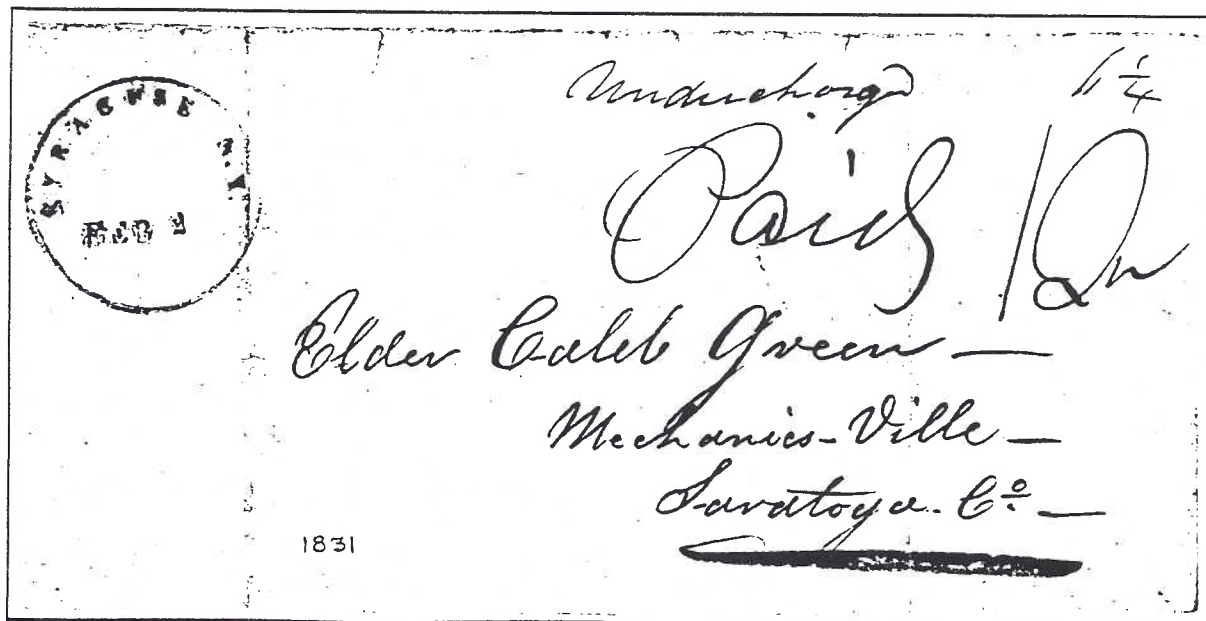 SYRACUSE N.Y.
FEB
Undercharged 6 1/4
Paid
Elder Caleb Green —
Mechanics-Ville —
Saratoga Co. —
1831